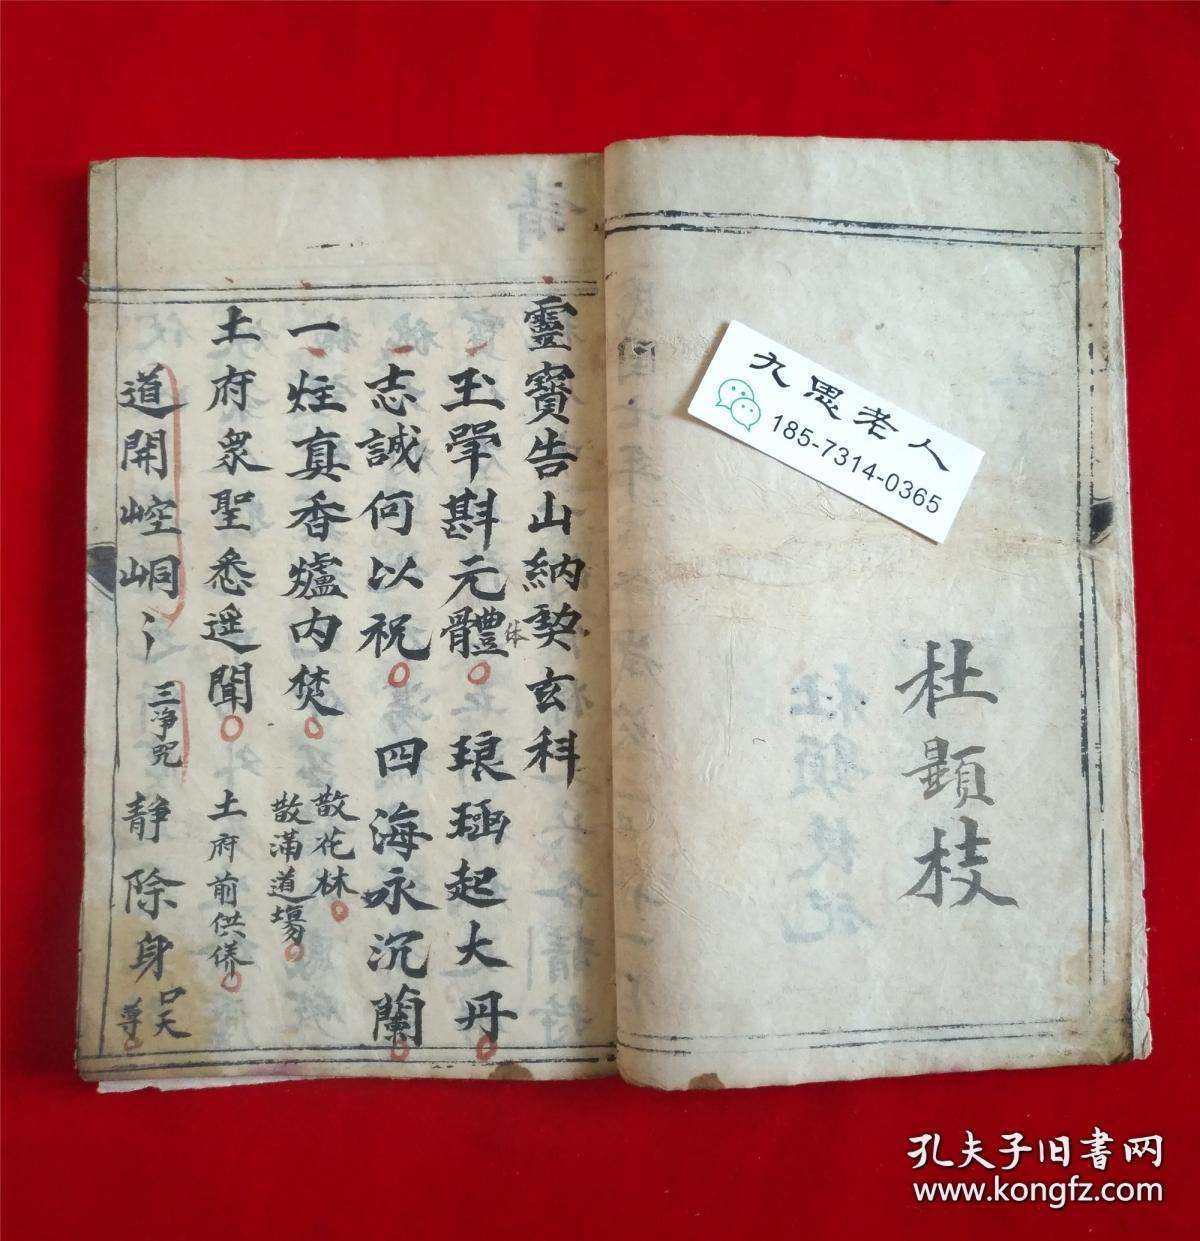 靈寶告山納契玄科
玉斝斟元體 琅函起大丹
体
志誠何以祝 四海永沉蘭
一炷真香爐内焚
散花林
散滿道場
土府衆聖悉遥聞
土府前供養
道開崆峒〻
三净咒
静除身
吴天
尊
請
杜顯枝
九思老人
185-7314-0365
孔夫子旧書网
www.kongfz.com